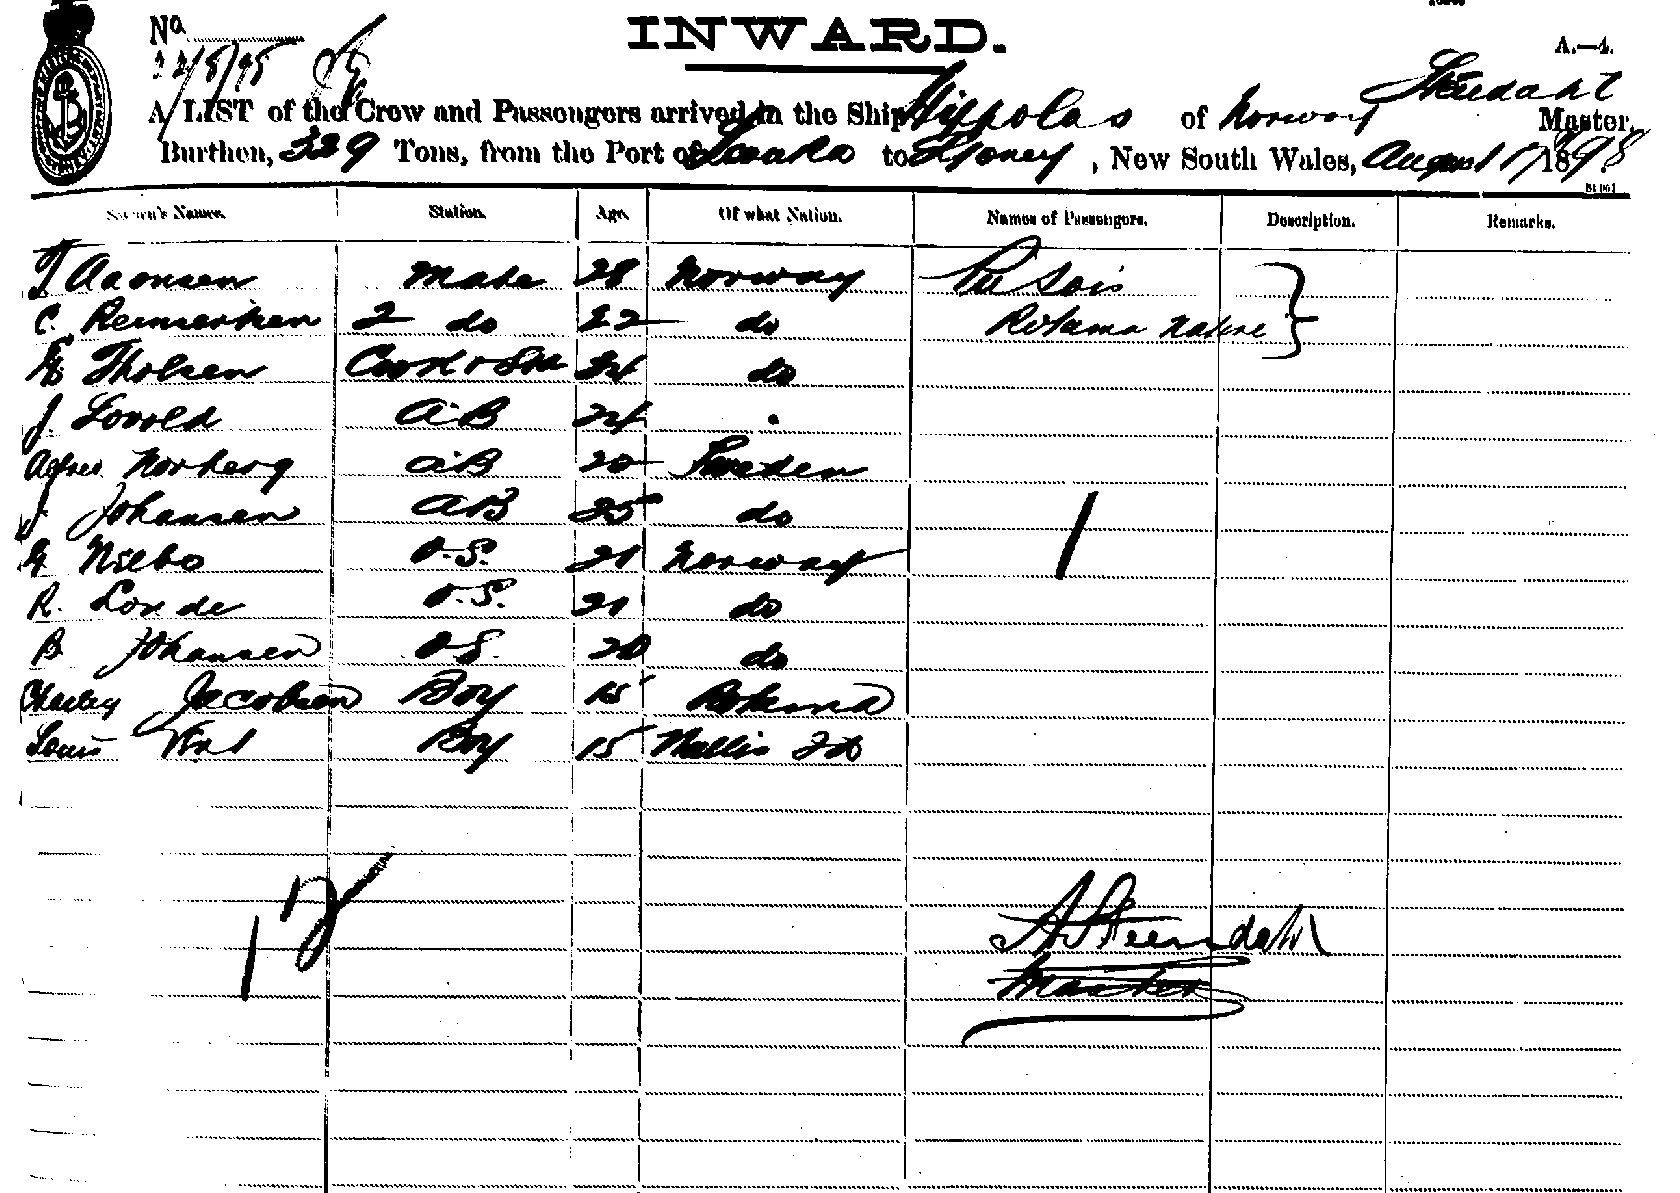 INWARD.
No
22/8/98
A.—4.
A LIST of the Crew and Passengers arrived in the Ship Hippolas of Norway Master,
Burthen, 329 Tons, from the Port of to Sydney, New South Wales, August 17 1898
Names. Station. Age. Of what Nation. Names of Passengers. Description. Remarks.
T Aaonsen Mate 28 Norway
C. 2 do 22 do Rotuma native
Tholsen Cook & 24 do
J. Lovold A.B 24 "
Norberg A.B 20 Sweden
J. Johansen A.B 25 do
Nielbo O.S. 21 Norway
R. O.S. 21 do
B Johansen O.S. 20 do
Charley Jacobsen Boy 15 Rotuma
Louis Boy 15 Wallis Id
1
12
A Steendahl
Master